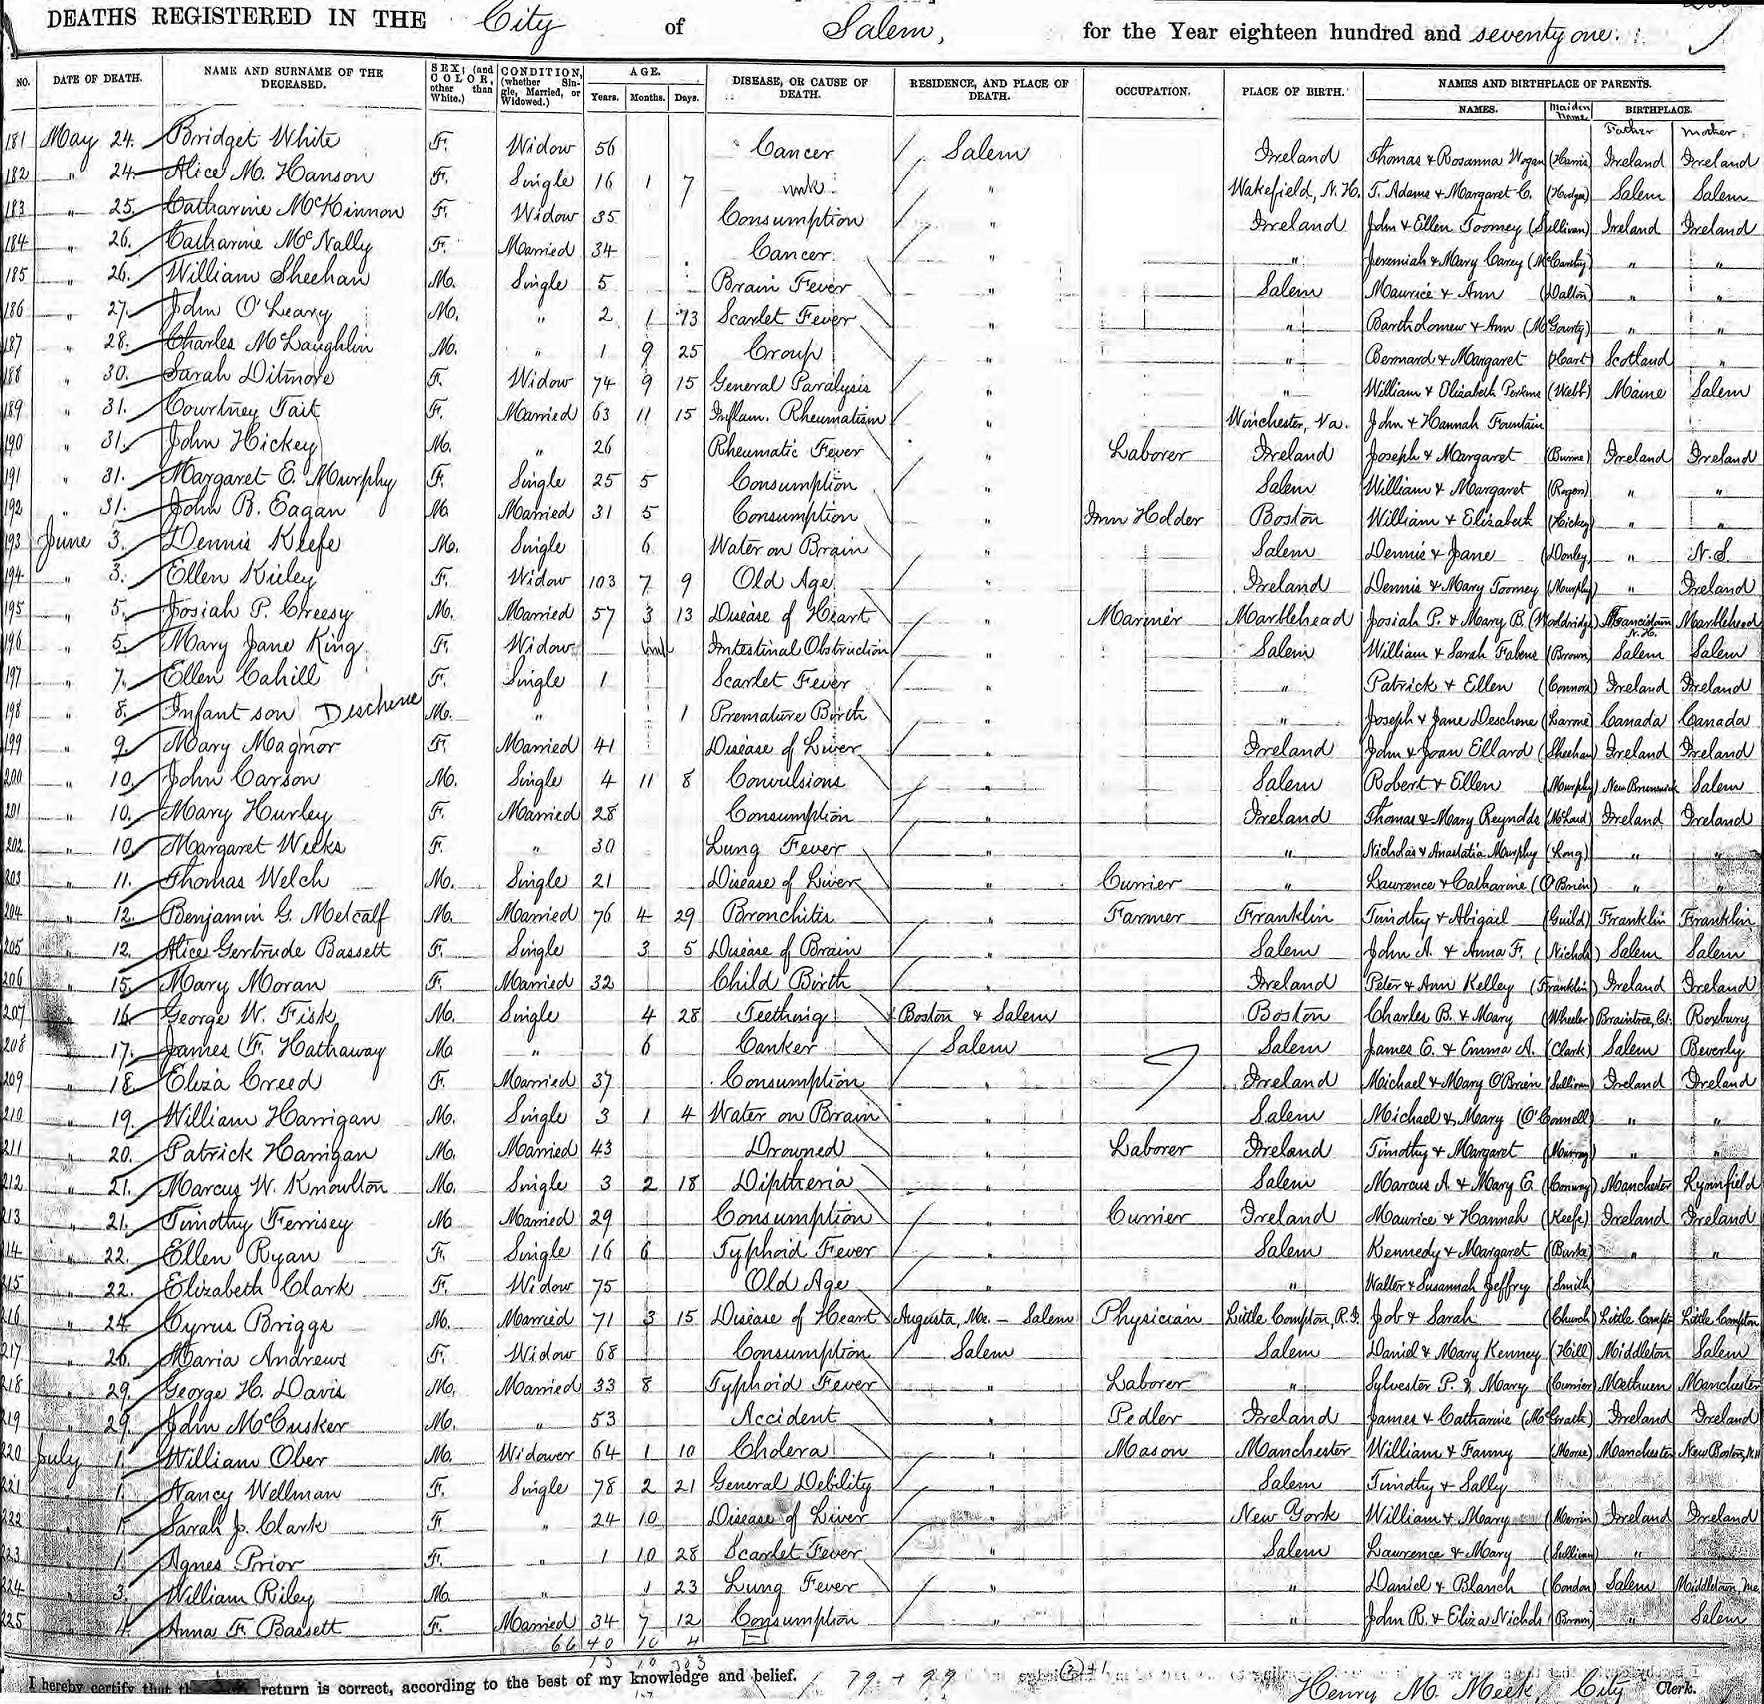 DEATHS REGISTERED IN THE City of Salem, for the Year eighteen hundred and seventy one.
NO. DATE OF DEATH. NAME AND SURNAME OF THE DECEASED. SEX; (and COLOR, other than White.) CONDITION, (whether Single, Married, or Widowed.) AGE. Years. Months. Days. DISEASE, OR CAUSE OF DEATH. RESIDENCE, AND PLACE OF DEATH. OCCUPATION. PLACE OF BIRTH. NAMES AND BIRTHPLACE OF PARENTS. NAMES. Maiden Name BIRTHPLACE. Father Mother
181 May 24. Bridget White F. Widow 56 Cancer Salem Ireland Thomas & Rosanna Wogan (Harris) Ireland Ireland
182 " 24. Alice M. Hanson F. Single 16 1 7 unk " Wakefield, N.H. T. Adams & Margaret C. Salem Salem
183 " 25. Catharine McKinnon F. Widow 35 Consumption " Ireland John & Ellen Toomey (Sullivan) Ireland Ireland
184 " 26. Catharine McNally F. Married 34 Cancer " " Jeremiah & Mary Carey (McCarthy) " "
185 " 26. William Sheehan M. Single 5 Brain Fever " Salem Maurice & Ann (Dalton) " "
186 " 27. John O'Leary M. " 2 1 13 Scarlet Fever " " Bartholomew & Ann (McGourty) " "
187 " 28. Charles McLaughlin M. " 1 9 25 Croup " " Bernard & Margaret (Hart) Scotland "
188 " 30. Sarah Ditmore F. Widow 74 9 15 General Paralysis " " William & Elizabeth Perkins (Webb) Maine Salem
189 " 31. Courtney Tait F. Married 63 11 15 Inflam. Rheumatism " Winchester, Va. John & Hannah Fountain
190 " 31. John Hickey M. " 26 Rheumatic Fever " Laborer Ireland Joseph & Margaret (Burns) Ireland Ireland
191 " 31. Margaret E. Murphy F. Single 25 5 Consumption " Salem William & Margaret (Ragan) " "
192 " 31. John B. Eagan M. Married 31 5 Consumption " Inn Holder Boston William & Elizabeth (Hickey) " "
193 June 3. Dennis Keefe M. Single 6 Water on Brain " Salem Dennis & Jane (Donley) " N.S.
194 " 3. Ellen Kieley F. Widow 103 7 9 Old Age " Ireland Dennis & Mary Toomey (Murphy) " Ireland
195 " 5. Josiah P. Creesy M. Married 57 3 13 Disease of Heart " Mariner Marblehead Josiah P. & Mary B. (Wooldridge) Francistown N.H. Marblehead
196 " 5. Mary Jane King F. Widow unk Intestinal Obstruction " Salem William & Sarah Fabens (Brown) Salem Salem
197 " 7. Ellen Cahill F. Single 1 Scarlet Fever " " Patrick & Ellen (Connors) Ireland Ireland
198 " 8. Infant son Deschene M. " 1 Premature Birth " " Joseph & Jane Deschene Canada Canada
199 " 9. Mary Magnor F. Married 41 Disease of Liver " Ireland John & Joan Ellard (Sheehan) Ireland Ireland
200 " 10. John Carson M. Single 4 11 8 Convulsions " Salem Robert & Ellen (Murphy) New Brunswick Salem
201 " 10. Mary Hurley F. Married 28 Consumption " Ireland Thomas & Mary Reynolds Ireland Ireland
202 " 10. Margaret Weeks F. " 30 Lung Fever " " Nicholas & Anastatia Murphy (Long) " "
203 " 11. Thomas Welch M. Single 21 Disease of Liver " Currier " Lawrence & Catharine (O'Brien) " "
204 " 12. Benjamin G. Metcalf M. Married 76 4 29 Bronchitis " Farmer Franklin Timothy & Abigail (Guild) Franklin Franklin
205 " 12. Alice Gertrude Bassett F. Single 3 5 Disease of Brain " Salem John A. & Anna F. (Nichols) Salem Salem
206 " 15. Mary Moran F. Married 32 Child Birth " Ireland Peter & Ann Kelley (Franklin) Ireland Ireland
207 " 16. George W. Fisk M. Single 4 28 Teething Boston & Salem Boston Charles B. & Mary (Wheeler) Braintree, Ct. Roxbury
208 " 17. James F. Hathaway M. " 6 Canker Salem Salem James E. & Emma A. (Clark) Salem Beverly
209 " 18. Eliza Creed F. Married 37 Consumption " Ireland Michael & Mary O'Brien (Sullivan) Ireland Ireland
210 " 19. William Harrigan M. Single 3 1 4 Water on Brain " Salem Michael & Mary (O'Connell) " "
211 " 20. Patrick Harrigan M. Married 43 Drowned " Laborer Ireland Timothy & Margaret (Murray) " "
212 " 21. Marcus W. Knowlton M. Single 3 2 18 Diptheria " Salem Marcus A. & Mary E. (Conway) Manchester Lynnfield
213 " 21. Timothy Ferrisey M. Married 29 Consumption " Currier Ireland Maurice & Hannah (Keefe) Ireland Ireland
214 " 22. Ellen Ryan F. Single 16 6 Typhoid Fever " Salem Kennedy & Margaret (Burke) " "
215 " 22. Elizabeth Clark F. Widow 75 Old Age " " Walter & Susannah Jeffry (Smith)
216 " 24. Cyrus Briggs M. Married 71 3 15 Disease of Heart Augusta, Me. - Salem Physician Little Compton, R.I. Job & Sarah (Church) Little Compton Little Compton
217 " 26. Maria Andrews F. Widow 68 Consumption Salem Salem Daniel & Mary Kenney (Hill) Middleton Salem
218 " 29. George H. Davis M. Married 33 8 Typhoid Fever " Laborer " Sylvester P. & Mary (Currier) Methuen Manchester
219 " 29. John McCusker M. " 53 Accident " Pedler Ireland James & Catharine (McGrath) Ireland Ireland
220 July 1. William Ober M. Widower 64 1 10 Cholera " Mason Manchester William & Fanny (Morse) Manchester New Boston, N.H.
221 " 1. Nancy Wellman F. Single 78 2 21 General Debility " Salem Timothy & Sally
222 " 1. Sarah J. Clark F. " 24 10 Disease of Liver " New York William & Mary Ireland Ireland
223 " 1. Agnes Prior F. " 1 10 28 Scarlet Fever " Salem Lawrence & Mary (Sullivan) "
224 " 3. William Riley M. " 1 23 Lung Fever " " Daniel & Blanch (Condon) Salem Middletown, Me.
225 " 4. Anna F. Bassett F. Married 34 7 12 Consumption " " John R. & Eliza Nichols (Brown) " Salem
66 40 10 4
I hereby certify that return is correct, according to the best of my knowledge and belief. 79 + 99 Henry M. Meek, City Clerk.